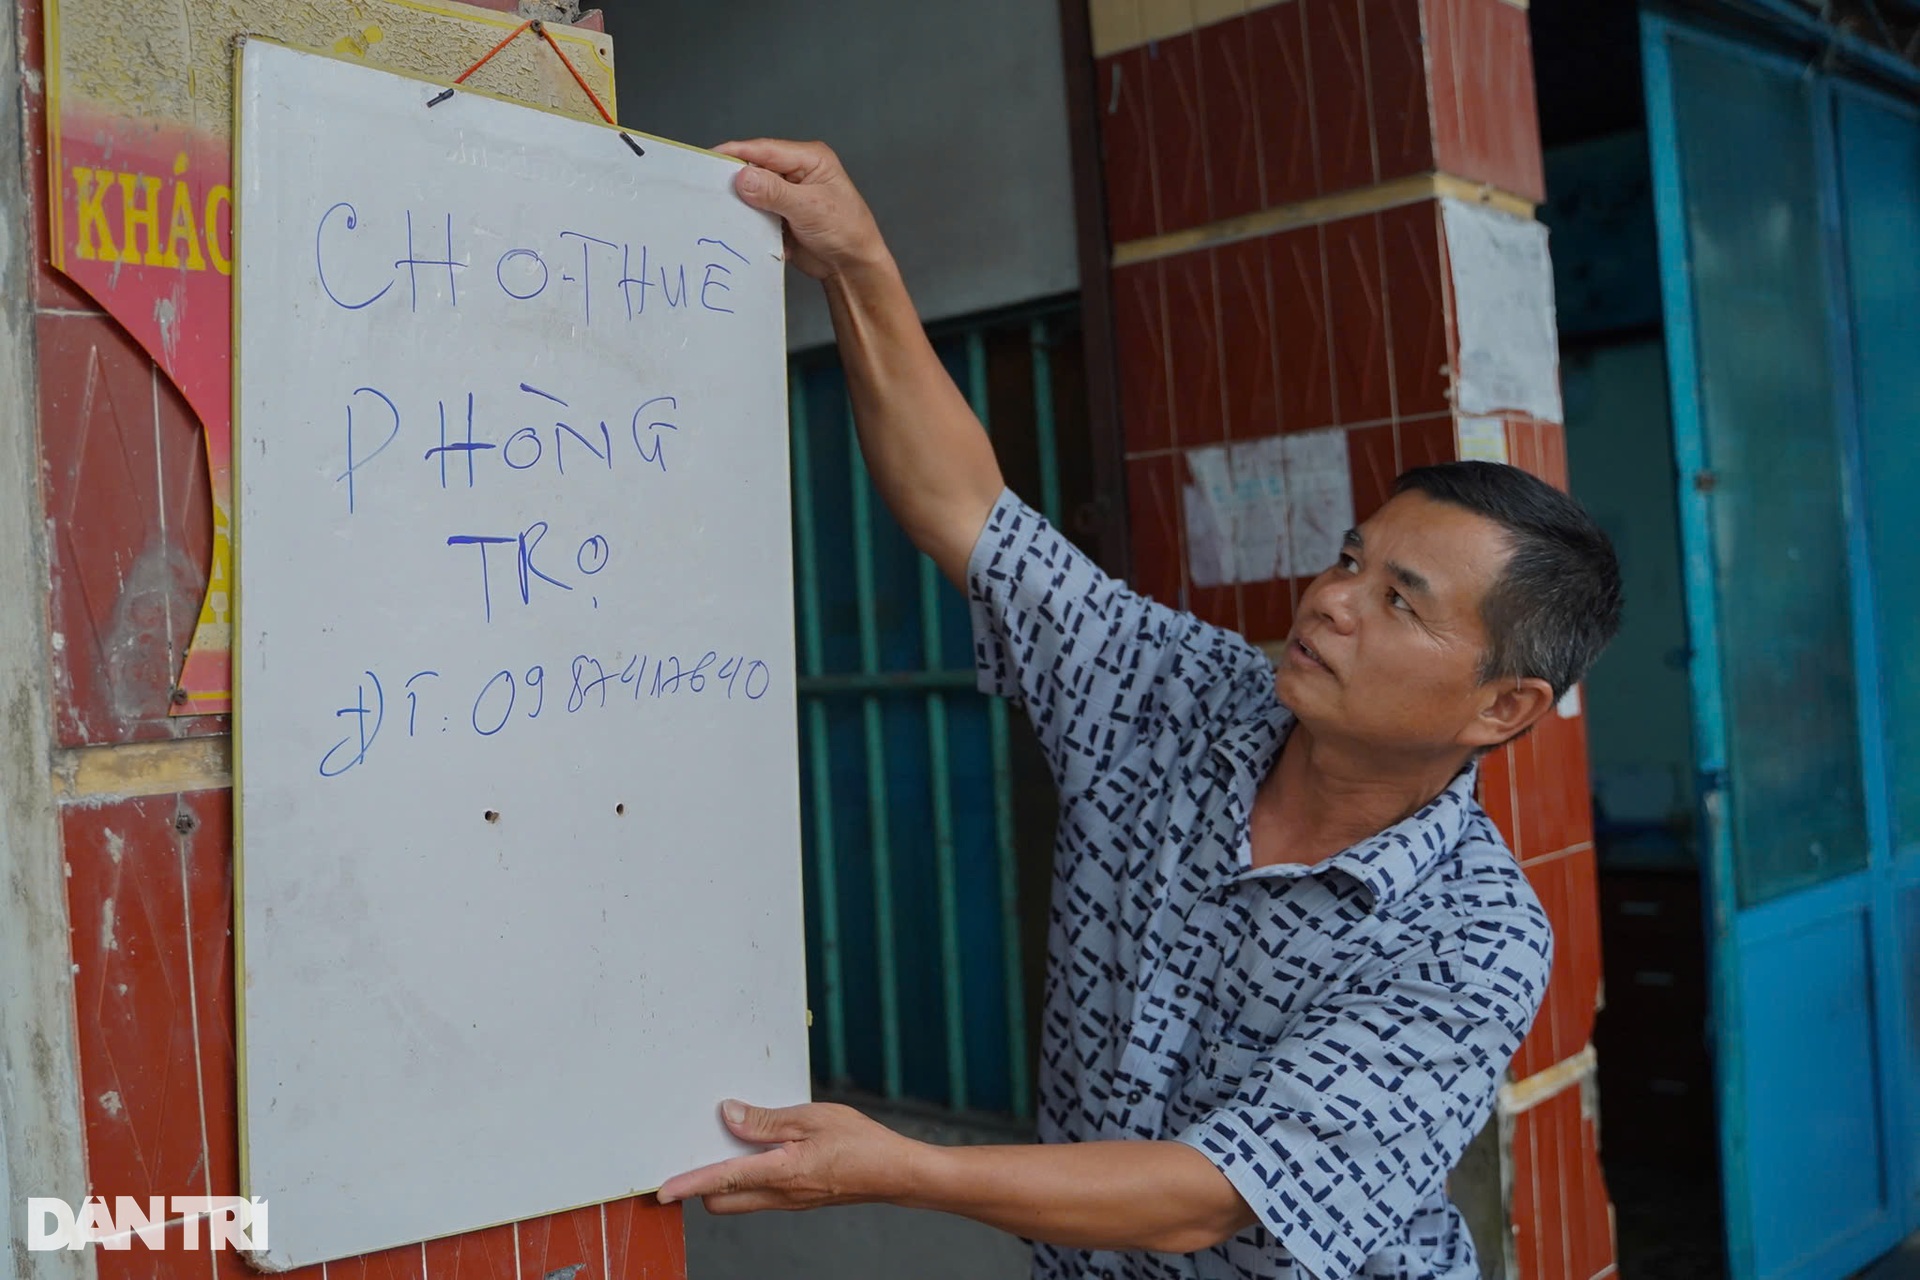 KHÁC
CHO-THUÊ
PHÒNG
TRỌ
ĐT: 0987417640
DÂN TRÍ